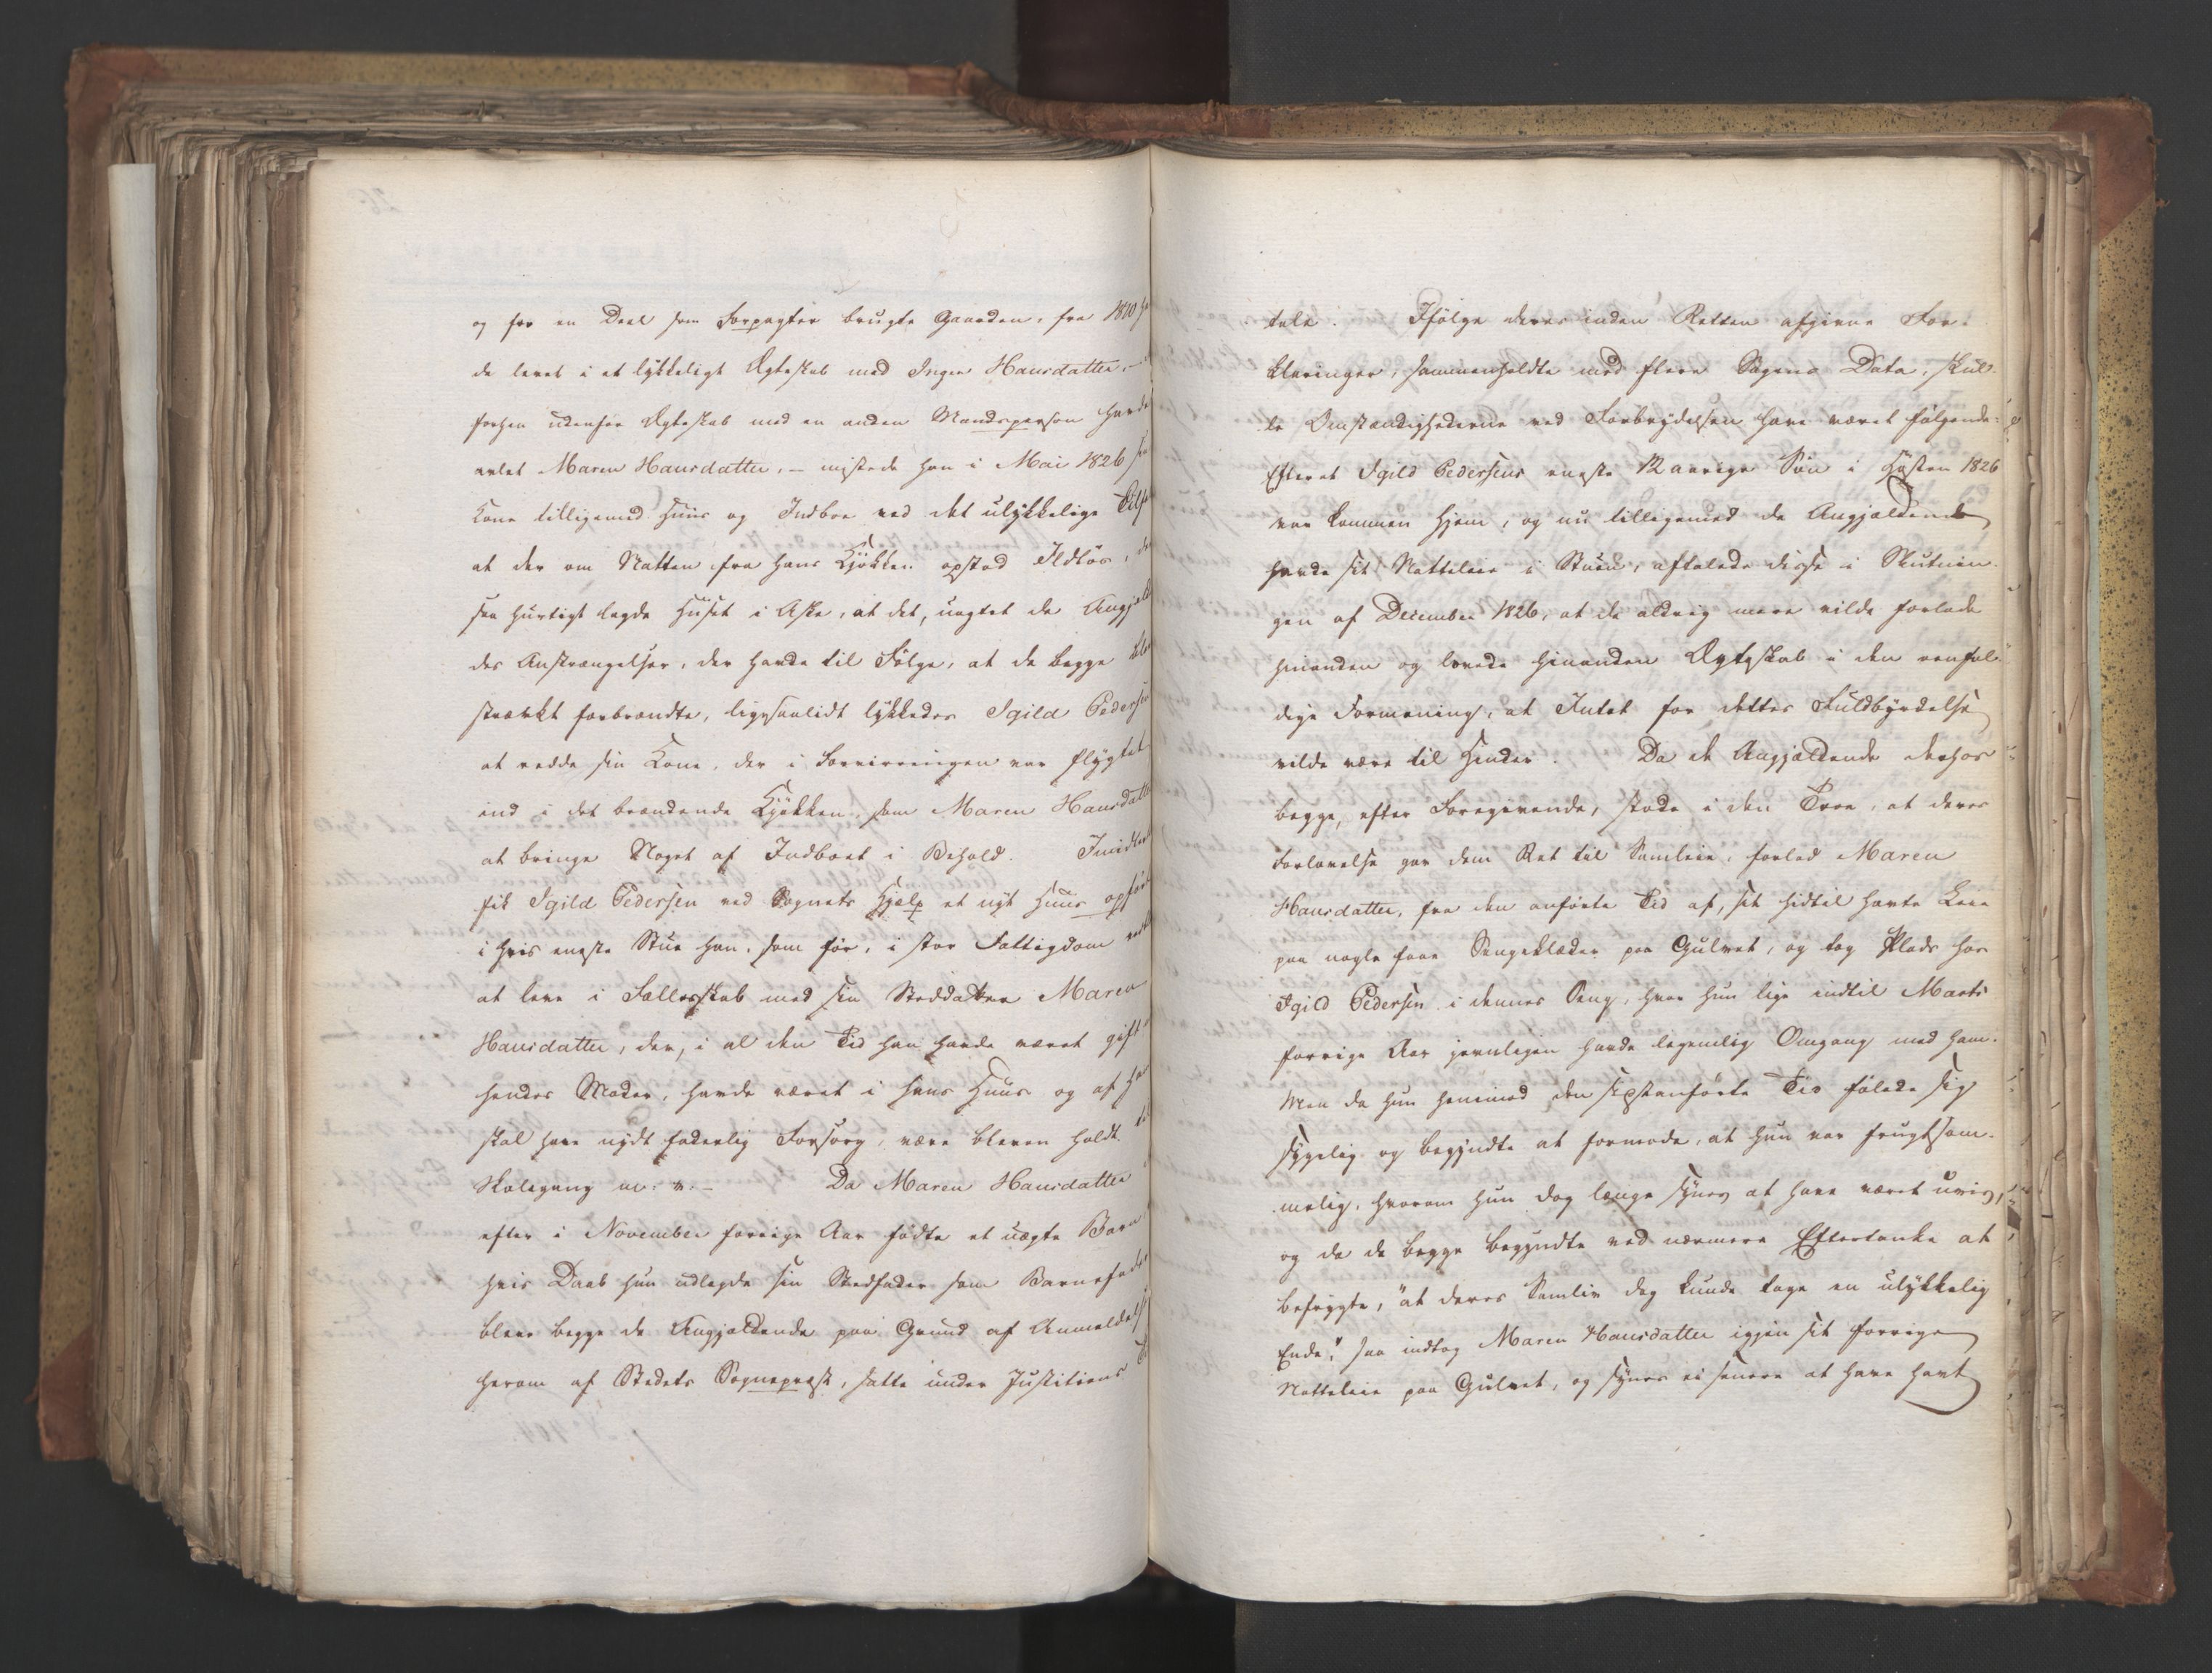 og for en Deel som Forpagter brugte Gaarden, fra 1810
de levet i et lykkeligt Ægteskab med Inger Hansdatter, –
forhen udenfor Ægteskab med en anden Mandsperson havde
avlet Maren Hansdatter, – mistede han i Mai 1826
Kone tilligemed Huus og Indboe ved det ulykkelige
at der om Natten fra hans Kjøkken opstod Ildløs,
saa hurtigt lagde Huset i Aske, at det, uagtet de
des Anstrængelser, der havde til Følge, at de begge
stærkt forbrændte, ligesaalidt lykkedes Igild Pedersen
at redde sin Kone, der i Forvirringen var flygtet
ind i det brændende Kjøkken, som Maren Hansdatter
at bringe Noget af Indboet i Behold. Imidlertid
fik Igild Pedersen ved Sognets Hjelp et nyt Huus opført
i hvis eneste Stue han, som før, i stor Fattigdom
at leve i Fællesskab med sin Steddatter Maren
Hansdatter, der, i al den Tid han havde været gift
hendes Moder, havde været i hans Huus og af
skal have nydt faderlig Forsorg, være bleven holdt
Skolegang m. v. – Da Maren Hansdatter
efter i November forrige Aar fødte et uægte Barn
hvis Daab hun udlagde sin Stedfader som Barnefader
bleve begge de Angjældende paa Grund af Anmeldelse
herom af Stedets Sognepræst, satte under Justitiens
tale. Ifølge deres inden Retten afgivne For-
klaringer, sammenholdte med flere Sagens Data, skul-
le Omstændighederne ved Forbrydelsen have været følgende:
Efterat Igild Pedersens eneste 12 aarige Søn i Høsten 1826
var kommen hjem, og nu tilligemed de Angjældende
havde sit Natteleie i Stuen, aftalede disse i Slutnin-
gen af December 1826, at de aldrig mere vilde forlade
hinanden og lovede hinanden Ægteskab i den eenfol-
dige Formening, at Intet for dettes Fuldbyrdelse
vilde være til Hinder. Da de Angjældende derhos
begge, efter Foregivende, stode i den Troe, at deres
Forlovelse gav dem Ret til Samleie, forlod Maren
Hansdatter, fra den anførte Tid af, sit hidtil havte Leie
paa nogle faae Sengeklæder paa Gulvet, og tog Plads hos
Igild Pedersen i dennes Seng, hvor hun lige indtil Marts
forrige Aar jevnligen havde legemlig Omgang med ham.
Men da hun henimod den sidstanførte Tid følede sig
sygelig og begyndte at formode, at hun var frugtsom-
melig, hvorom hun dog længe synes at have været uvis,
og da de begge begyndte ved nærmere Eftertanke at
befrygte, "at deres Samliv dog kunde tage en ulykkelig
Ende," saa indtog Maren Hansdatter igjen sit forrige
Natteleie paa Gulvet, og synes ei senere at have havt